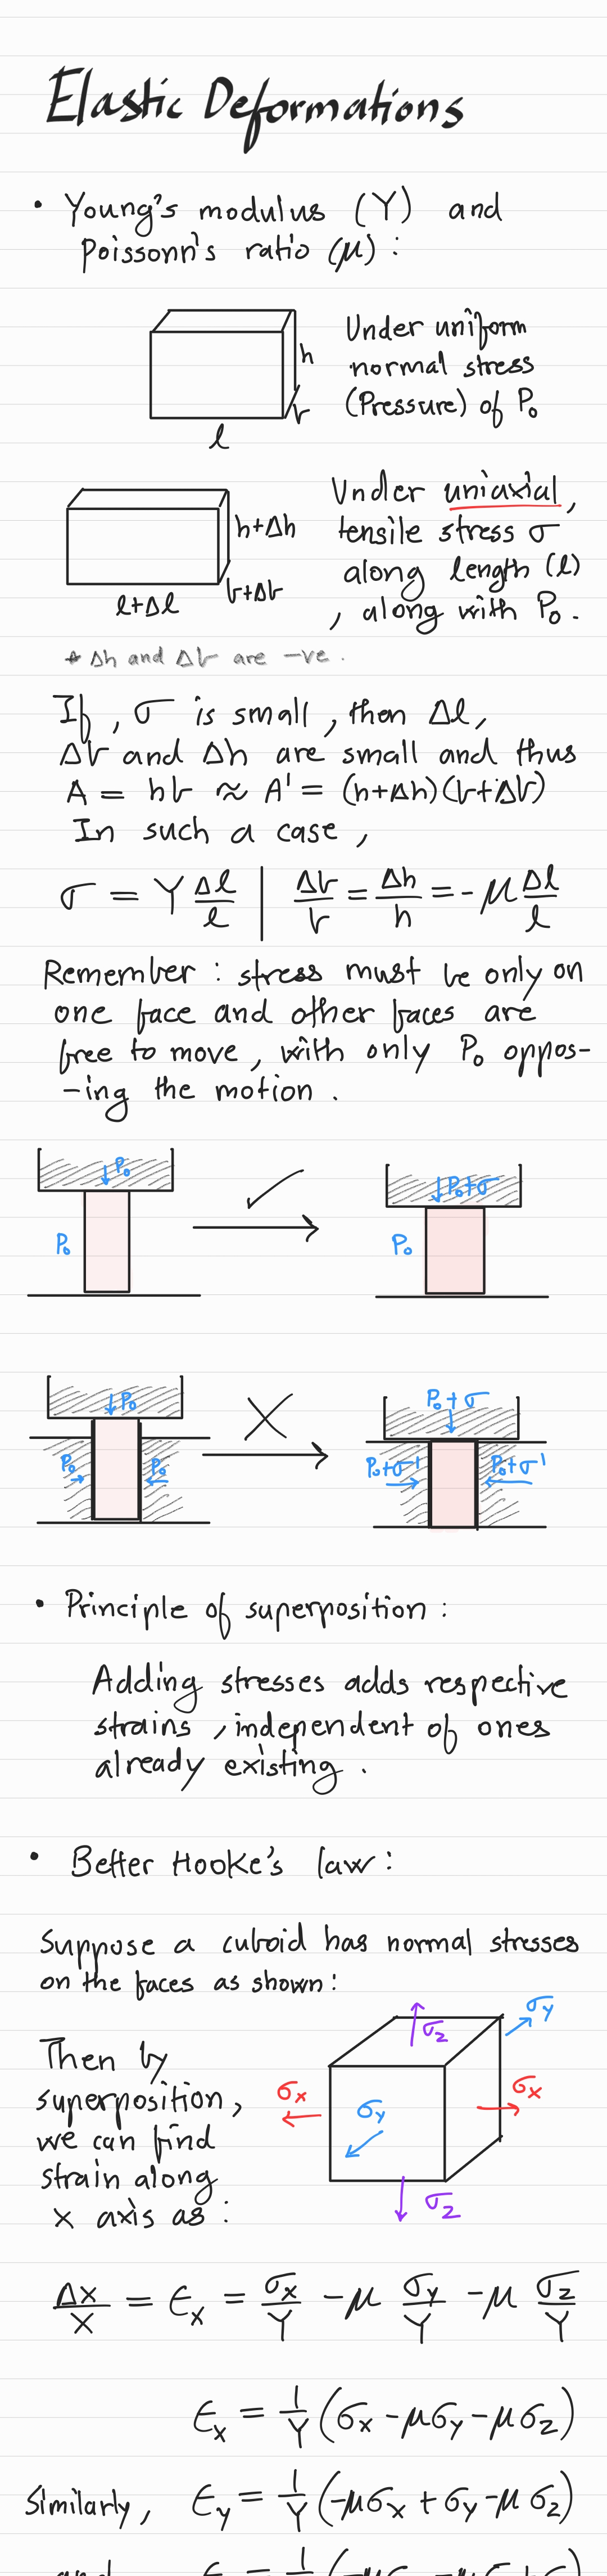 Elastic Deformations
• Young's modulus (Y) and
Poissonn's ratio (μ) :
h
b
l
Under uniform
normal stress
(Pressure) of P₀
h+Δh
b+Δb
l+Δl
Under uniaxial,
tensile stress σ
along length (l)
, along with P₀.
* Δh and Δb are -ve.
If, σ is small, then Δl,
Δb and Δh are small and thus
A = hb ≈ A' = (h+Δh)(b+Δb)
In such a case,
σ = Y Δl/l | Δb/b = Δh/h = -μ Δl/l
Remember : stress must be only on
one face and other faces are
free to move, with only P₀ oppos-
-ing the motion.
↓P₀
P₀
↓P₀+σ
P₀
↓P₀
P₀
P₀
P₀+σ
P₀+σ'
P₀+σ'
• Principle of superposition :
Adding stresses adds respective
strains, independent of ones
already existing.
• Better Hooke's law :
Suppose a cuboid has normal stresses
on the faces as shown :
Then by
superposition,
we can find
strain along
x axis as :
σz
σy
σx
σx
σy
σz
Δx/x = εx = σx/Y - μ σy/Y - μ σz/Y
εx = 1/Y (σx - μσy - μσz)
Similarly, εy = 1/Y (-μσx + σy - μσz)